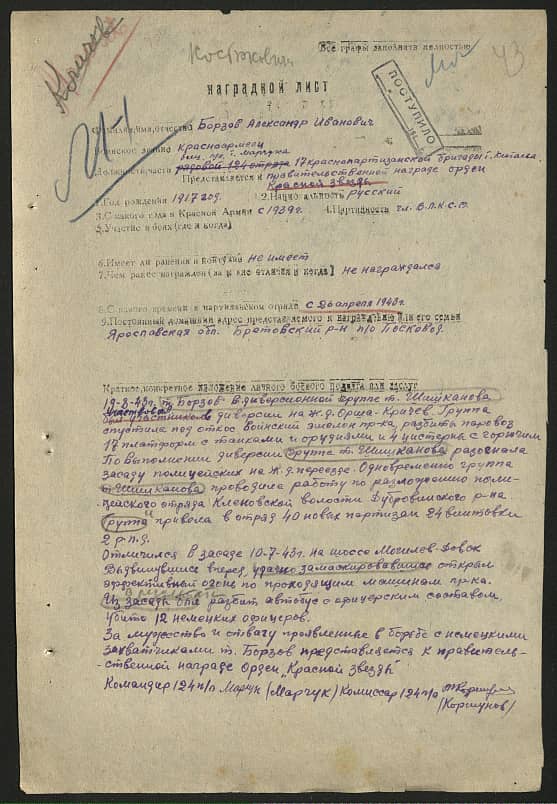 Костжович
Все графы заполнять полностью
43
НАГРАДНОЙ ЛИСТ
ПОСТУПИЛО
Фамилия, имя, отчество Борзов Александр Иванович
Воинское звание Красноармеец
Должность, часть рядовой 124 отряда 17 краснопартизанской бригады
Представляется к правительственной награде орден
Красной Звезды
1. Год рождения 1917 год. 2. Национальность русский
3. С какого года в Красной Армии с 1939г. 4. Партийность чл. В.Л.К.С.М.
5. Участие в боях (где и когда)
6. Имеет ли ранения и контузии не имеет
7. Чем ранее награжден (за какие отличия и когда) не награждался
8. С какого времени в партизанском отряде с 26 апреля 1943г.
9. Постоянный домашний адрес представляемого к награждению или его семьи
Ярославская обл. Бретовский р-н п/о Посковод.
Краткое, конкретное изложение личного боевого подвига или заслуг
19-8-43г. т. Борзов в диверсионной группе т. Шишканова
участвовал
был участником диверсии на ж.д. Орша-Кричев. Группа
спустила под откос воинский эшелон пр-ка, разбиты паровоз
17 платформ с танками и орудиями и 4 цистерны с горючим
По выполнении диверсии группа т. Шишканова разогнала
засаду полицейских на ж.д. переезде. Одновременно группа
т. Шишканова проводила работу по разложению поли-
цейского отряда Кленовской волости Дубровинского р-на
Группа привела в отряд 40 новых партизан 24 винтовки
2 р.п.д.
Отличился в засаде 10-7-43г. на шоссе Могилев-Довск
Выдвинувшись вперед, удачно замаскировавшись открыл
эффективный огонь по проходящим машинам пр-ка.
Из засады был разбит автобус с офицерским составом,
убито 12 немецких офицеров.
За мужество и отвагу проявленные в борьбе с немецкими
захватчиками т. Борзов представляется к правитель-
-ственной награде Орден „Красной Звезды"
Командир 124 п/о Марчук (Марчук) Комиссар 124 п/о
(Коршунов)